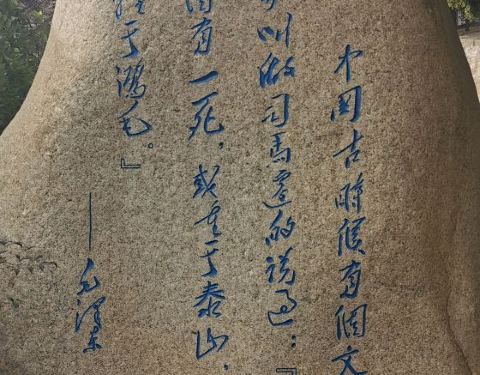 中国古时候有个文
叫做司马迁的说过:
固有一死,或重于泰山,
于鸿毛。』
——毛泽东